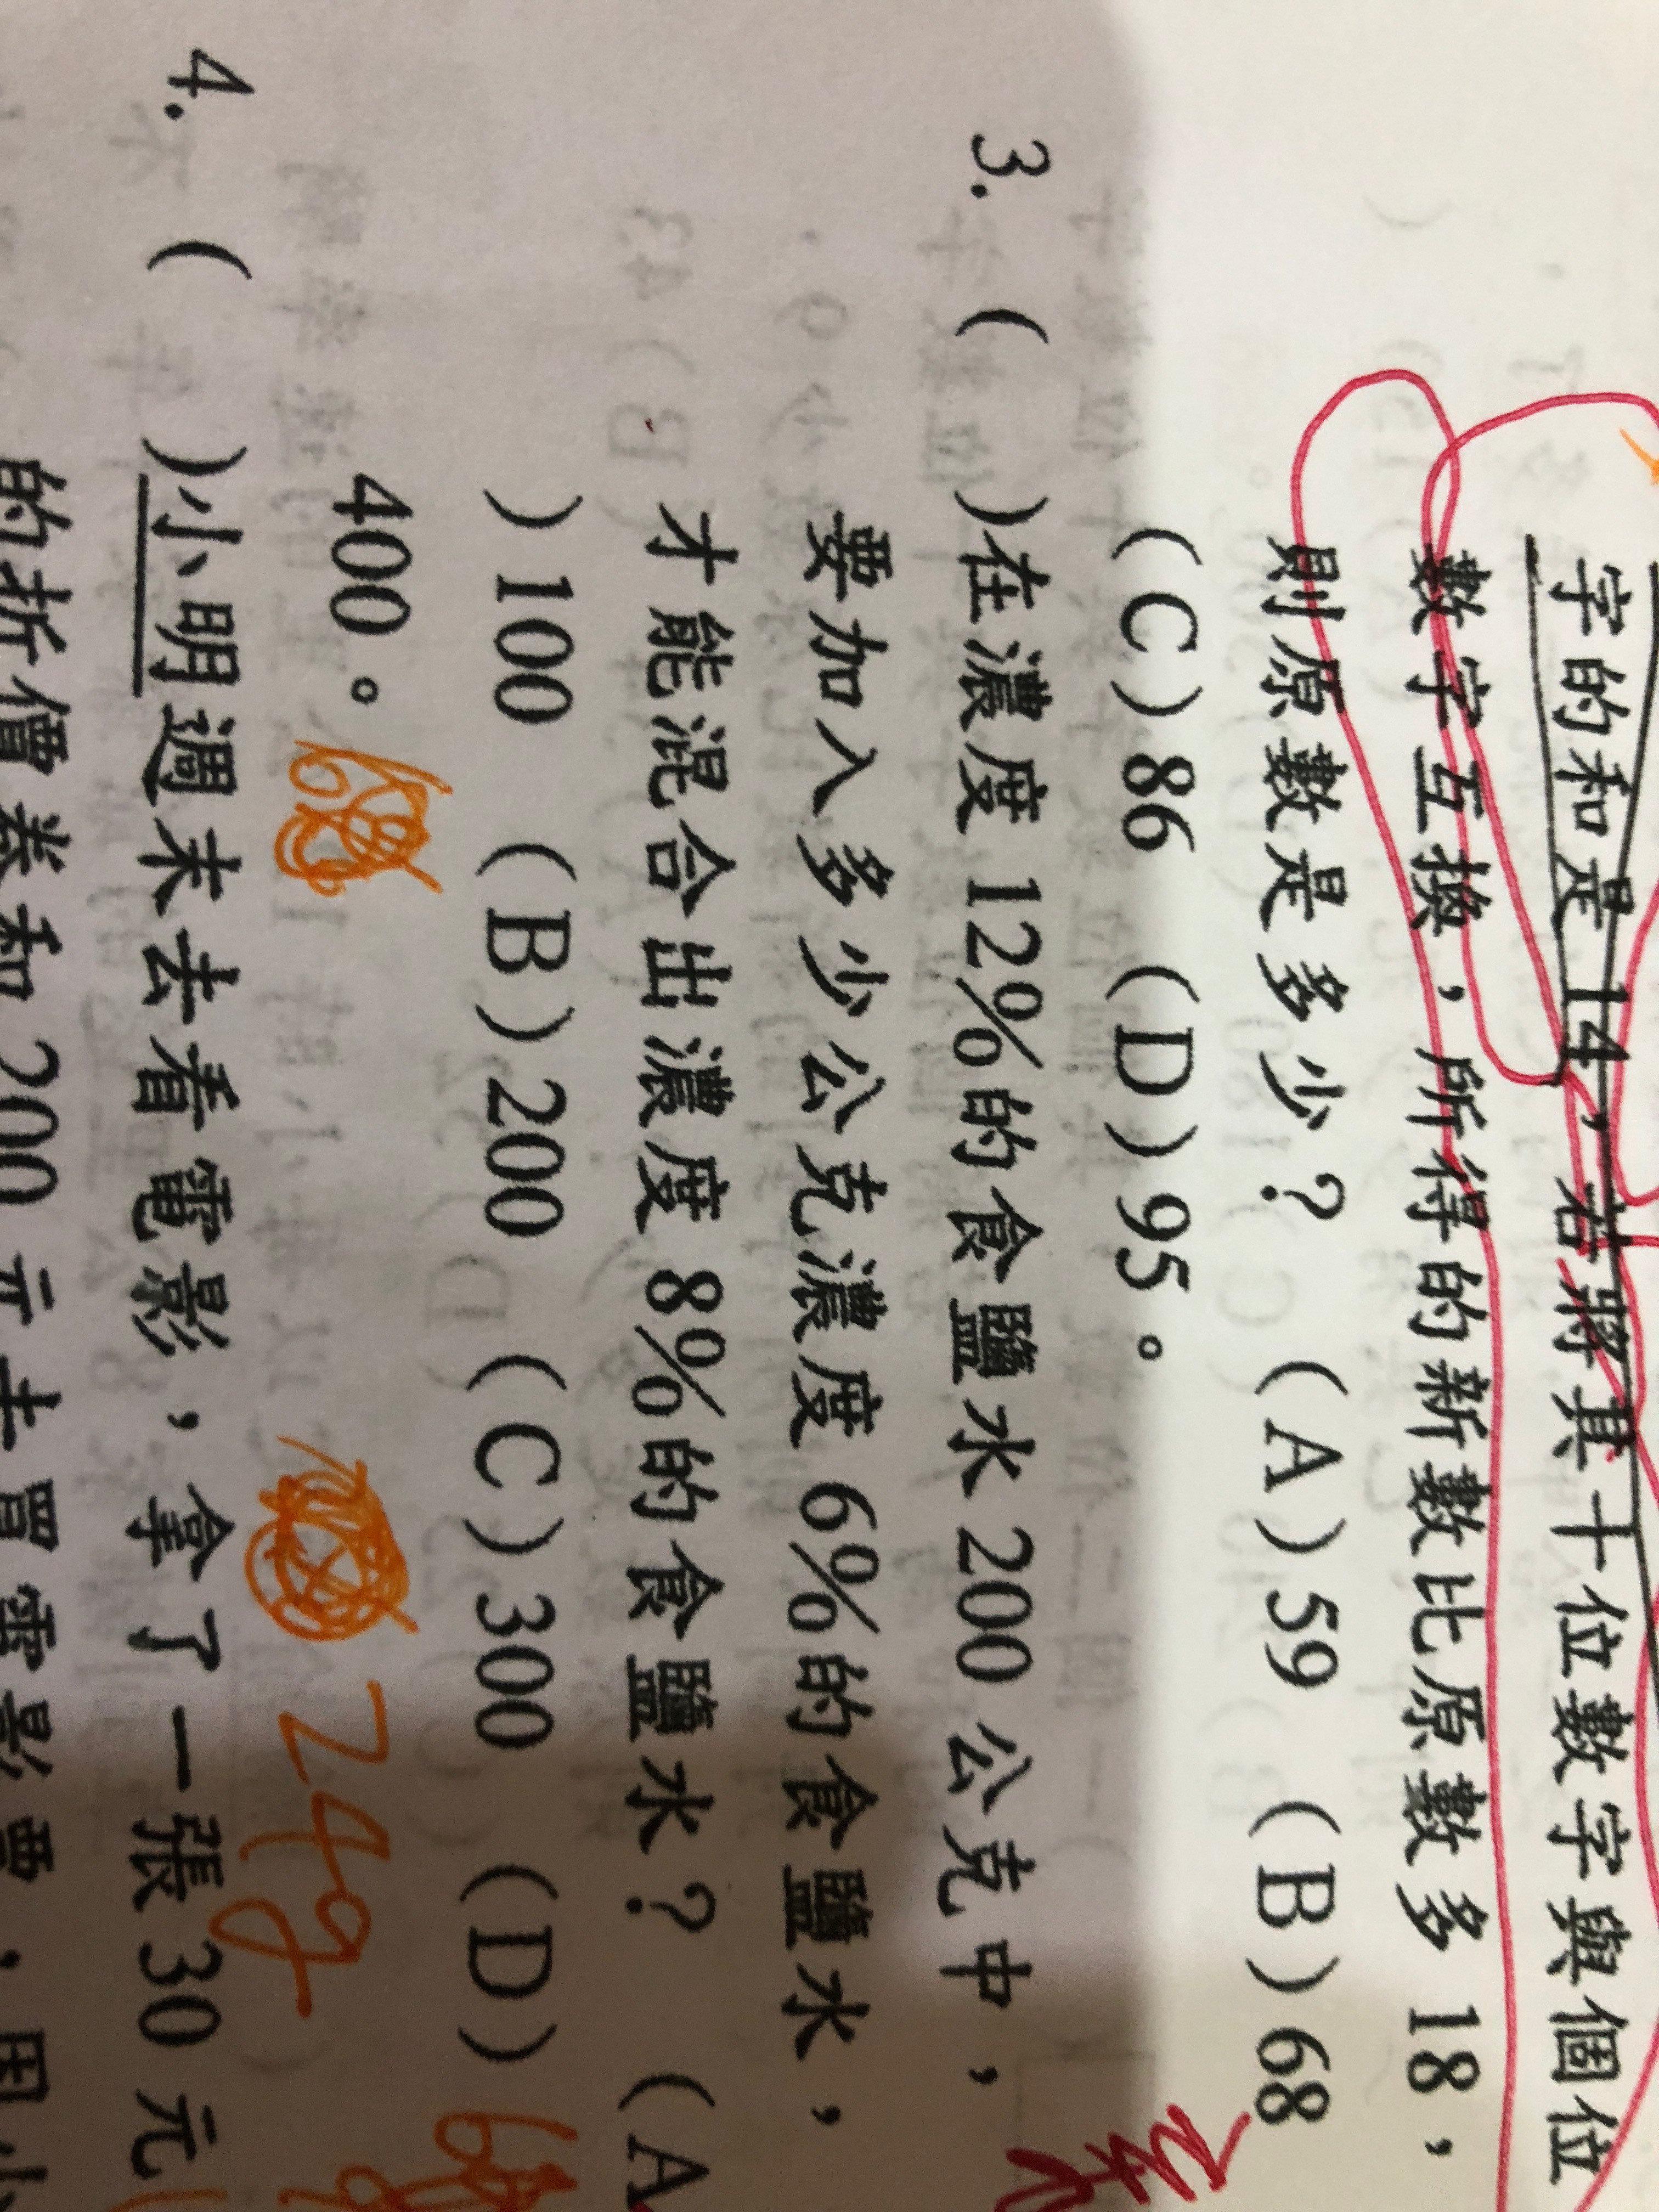 字的和是14,若將其十位數字與個位
數字互換,所得的新數比原數多18,
則原數是多少? (A)59 (B)68
(C)86 (D)95。
3. ( )在濃度12%的食鹽水200公克中,
要加入多少公克濃度6%的食鹽水,
才能混合出濃度8%的食鹽水? (A
)100 (B)200 (C)300 (D)
400。
24g
4. ( )小明週末去看電影,拿了一張30元
的折價券和200元去買電影票,